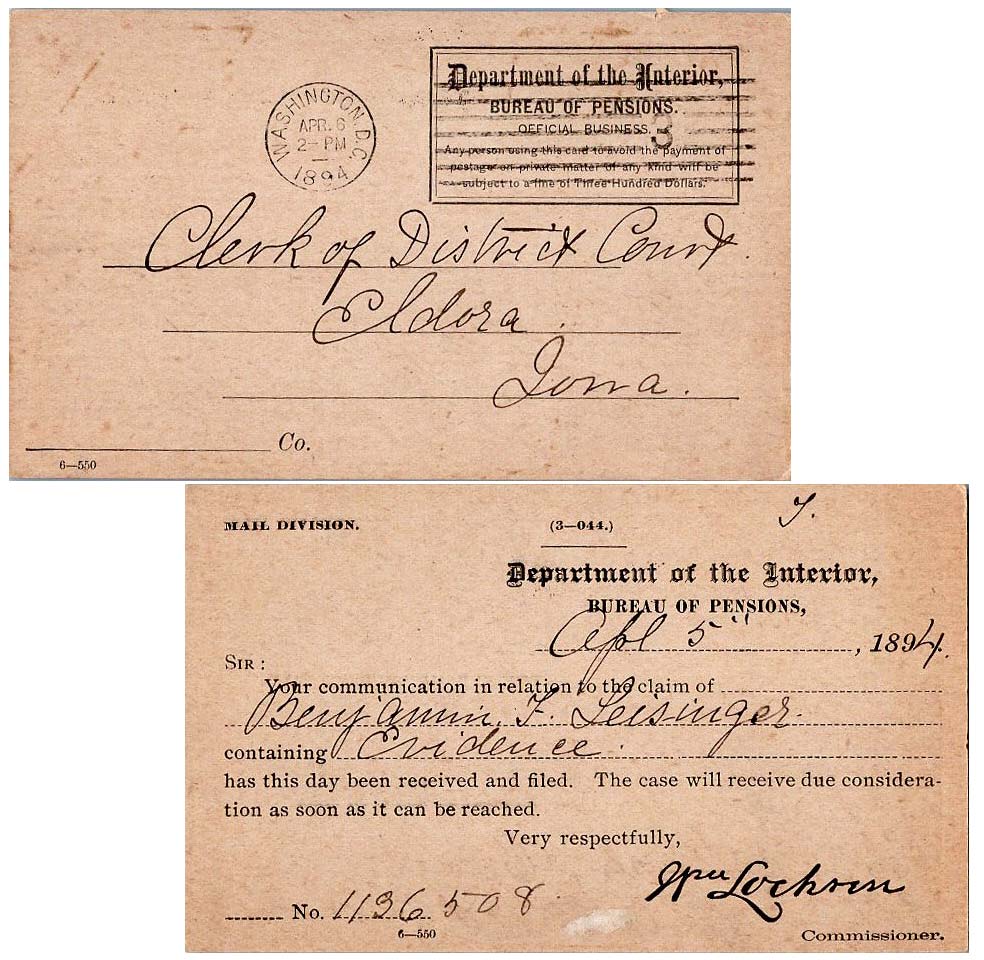 WASHINGTON, D.C.
APR. 6
2- PM
1894
Department of the Interior,
BUREAU OF PENSIONS.
OFFICIAL BUSINESS.
3
Any person using this card to avoid the payment of
postage on private matter of any kind will be
subject to a fine of Three Hundred Dollars.
Clerk of District Court.
Eldora.
Iowa.
Co.
6—550
MAIL DIVISION.
(3—044.)
Department of the Interior,
BUREAU OF PENSIONS,
Apl 5", 1894.
SIR:
Your communication in relation to the claim of
Benjamin. F. Leisinger.
containing Evidence.
has this day been received and filed. The case will receive due considera-
tion as soon as it can be reached.
Very respectfully,
Wm Lochren
No. 1136508
6—550
Commissioner.